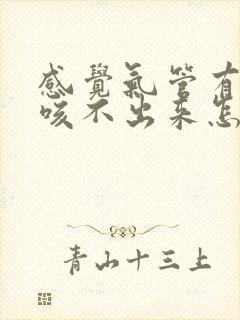 感覺氣管有
咳不出來怎
青山十三上